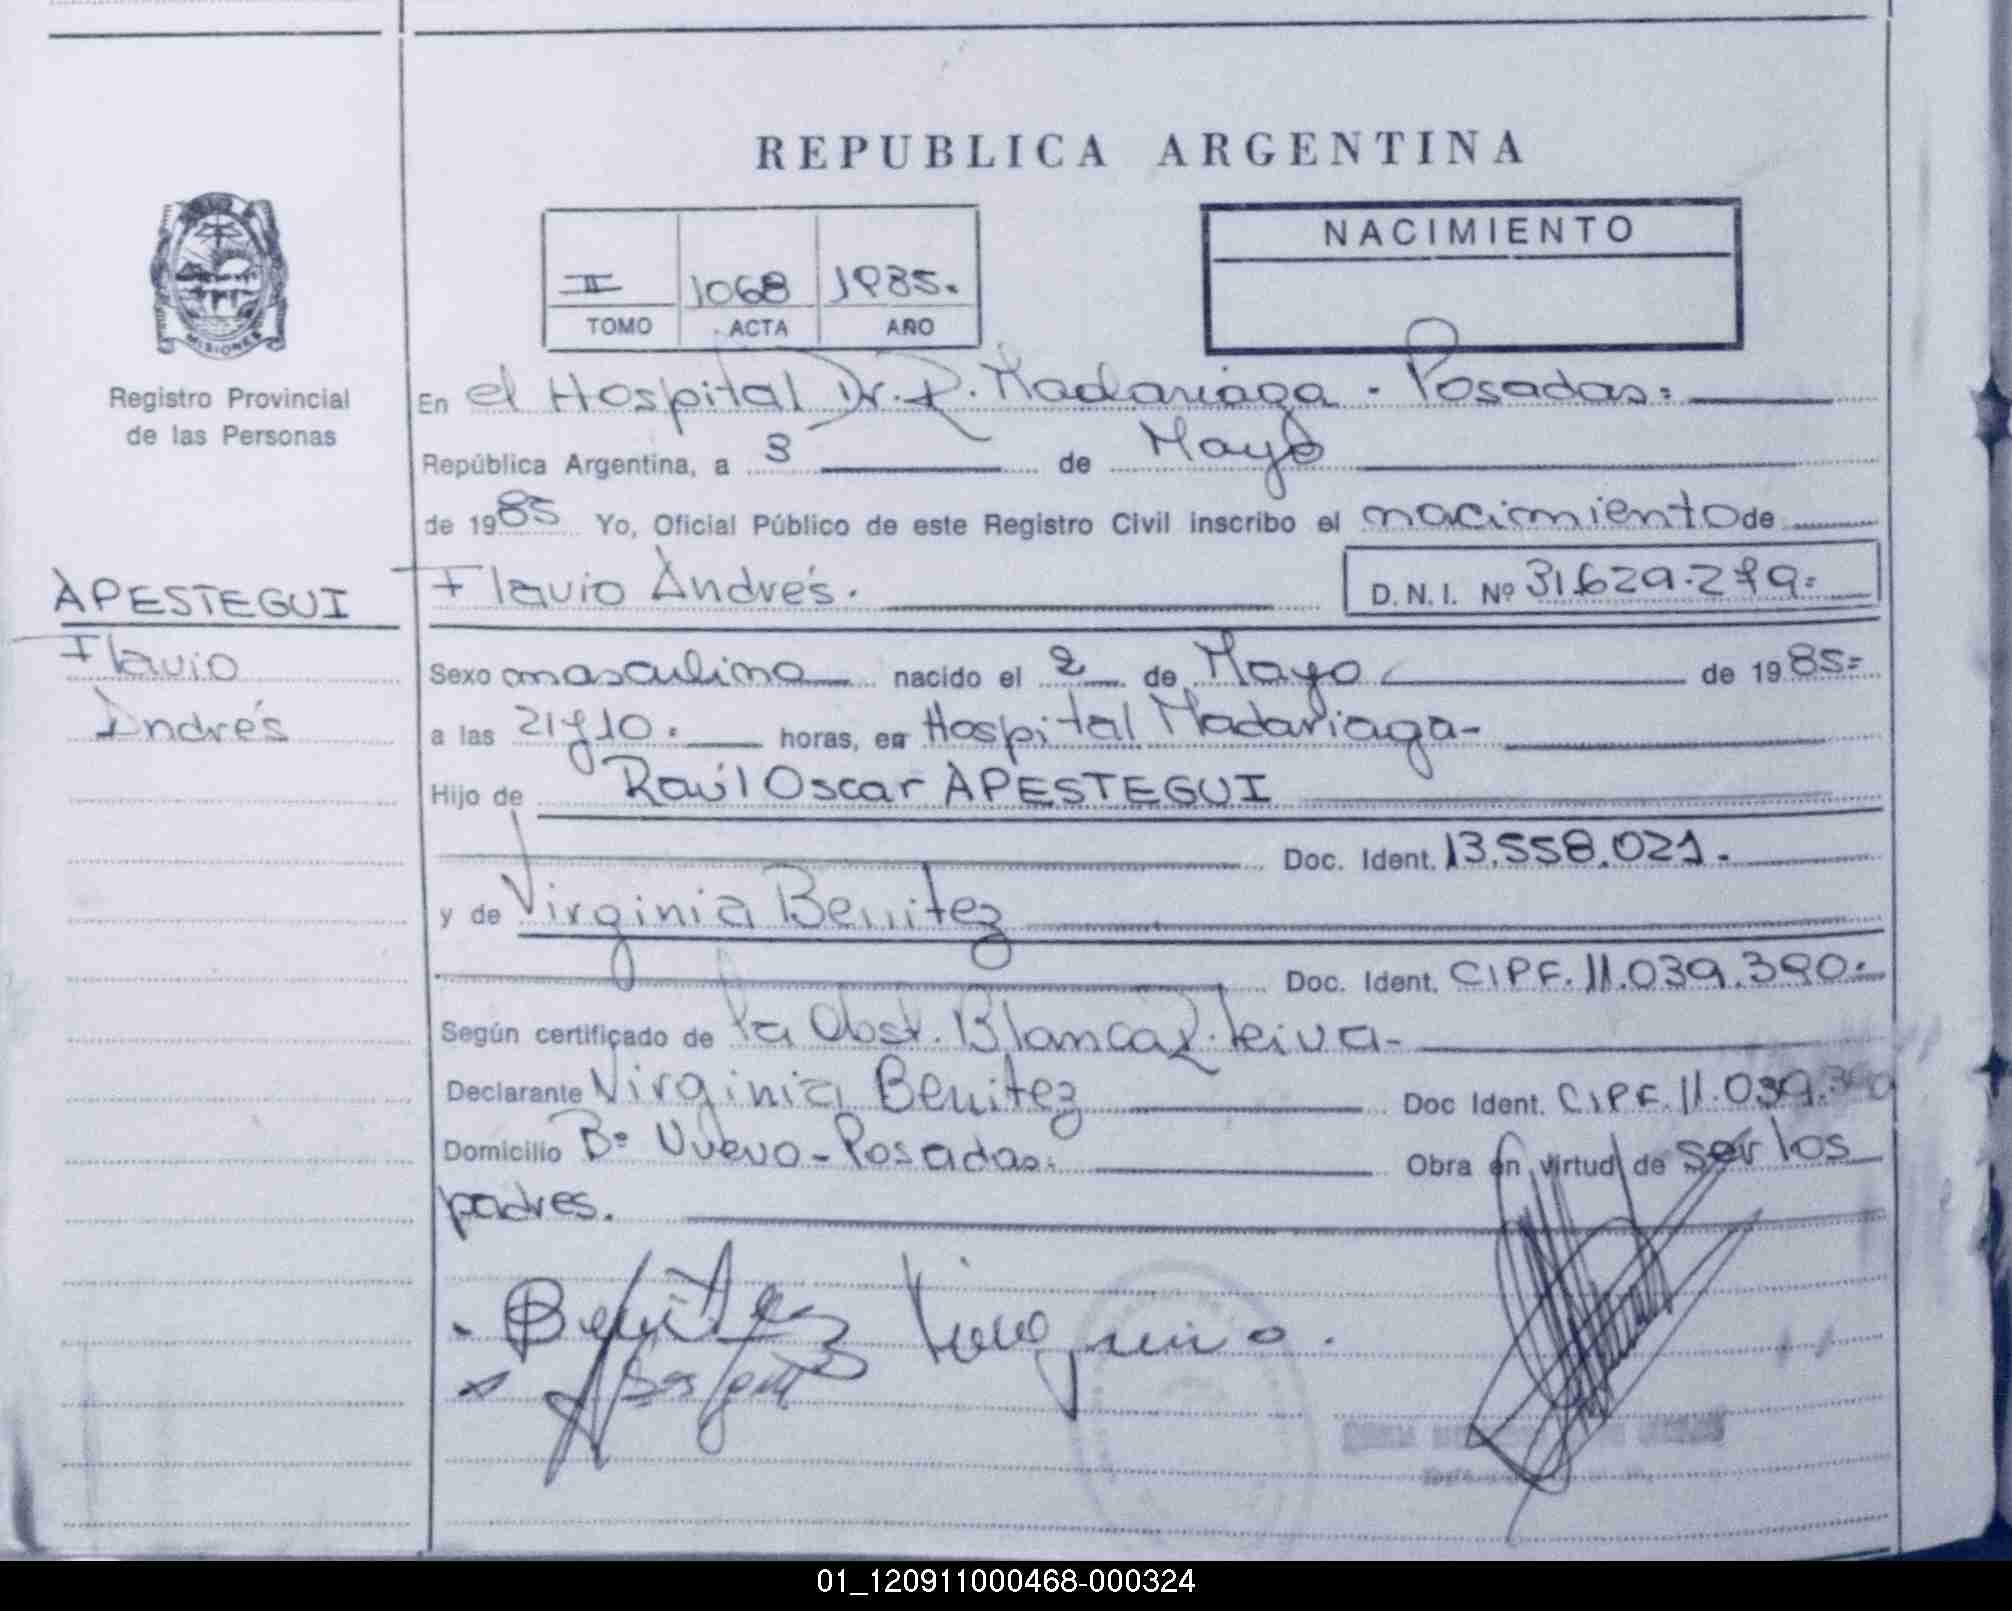 REPUBLICA ARGENTINA
NACIMIENTO
II 1068 1985.
TOMO ACTA AÑO
MISIONES
Registro Provincial
de las Personas
APESTEGUI
Flavio
Andrés
En el Hospital Dr. R. Madariaga - Posadas.
República Argentina, a 3 de Mayo
de 1985 Yo, Oficial Público de este Registro Civil inscribo el nacimiento de
Flavio Andrés. D.N.I. Nº 31.629.279.
Sexo masculino nacido el 2 de Mayo de 1985=
a las 21 y 10. horas, en Hospital Madariaga-
Hijo de Raúl Oscar APESTEGUI
Doc. Ident. 13.558.021.
y de Virginia Benitez
Doc. Ident. CIPF. 11.039.390.
Según certificado de la Obst. Blanca R. Leiva-
Declarante Virginia Benitez Doc Ident. CIPF. 11.039.390
Domicilio Bº Nuevo - Posadas. Obra en virtud de ser los
padres.
Benitez Virginia.
01_120911000468-000324